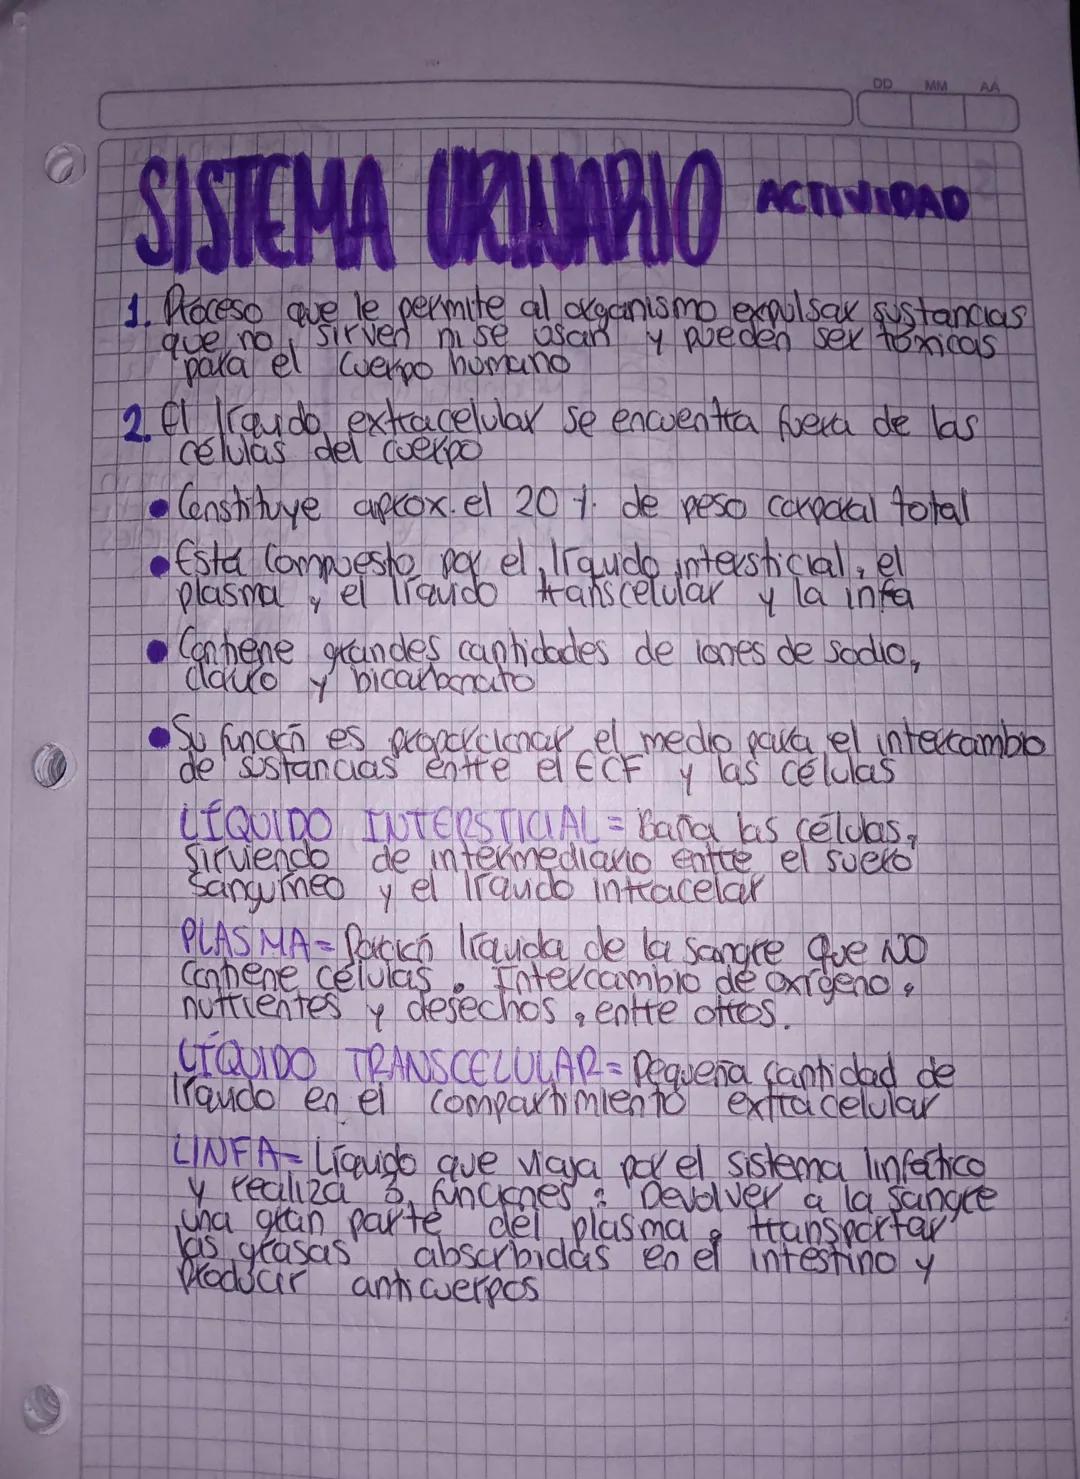 DD MM AA
SISTEMA URINARIO ACTIVIDAD
1. Proceso que le permite al organismo expulsar sustancias
que no sirven ni se usan y pueden ser tóxicas
para el cuerpo humano
2. El líquido extracelular se encuentra fuera de las
células del cuerpo
• Constituye aprox. el 20 % de peso corporal total
• Está compuesto por el líquido intersticial, el
plasma, el líquido transcelular y la infa
• Contiene grandes cantidades de iones de sodio,
cloruro y bicarbonato
• Su función es proporcionar el medio para el intercambio
de sustancias entre el ECF y las células
LÍQUIDO INTERSTICIAL = Baña las células,
sirviendo de intermediario entre el suero
sanguíneo y el líquido intracelar
PLASMA = Porción líquida de la sangre que NO
contiene células. Intercambio de oxígeno,
nutrientes y desechos, entre otros.
LÍQUIDO TRANSCELULAR = Pequeña cantidad de
líquido en el compartimiento extracelular
LINFA = Líquido que viaja por el sistema linfático
y realiza 3 funciones: Devolver a la sangre
una gran parte del plasma, transportar
las grasas absorbidas en el intestino y
producir anticuerpos